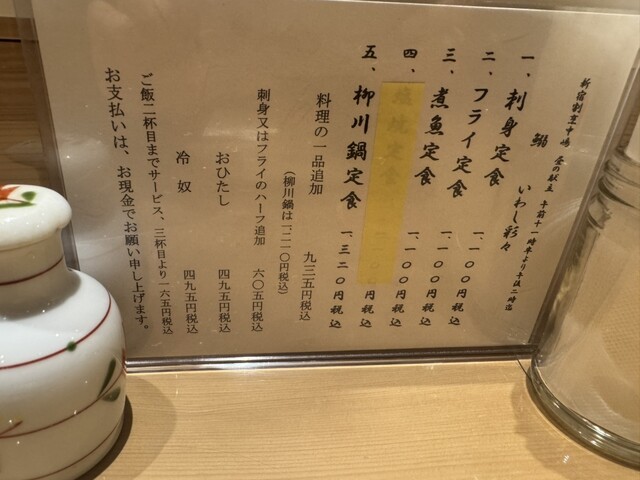 新宿割烹中嶋 昼の献立 午前十一時半より午後二時迄
鰯 いわし彩々
一、刺身定食 一、一〇〇円税込
二、フライ定食 一、一〇〇円税込
三、煮魚定食 一、一〇〇円税込
四、
五、柳川鍋定食 一、三二〇円税込
料理の一品追加 九三五円税込
(柳川鍋は一、二一〇円税込)
刺身又はフライのハーフ追加 六〇五円税込
おひたし 四九五円税込
冷奴 四九五円税込
ご飯二杯目までサービス、三杯目より一六五円税込
お支払いは、お現金でお願い申し上げます。